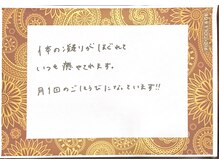 体の凝りがほぐれて
いつも癒やされてます。
月1回のごほうびになっています!!